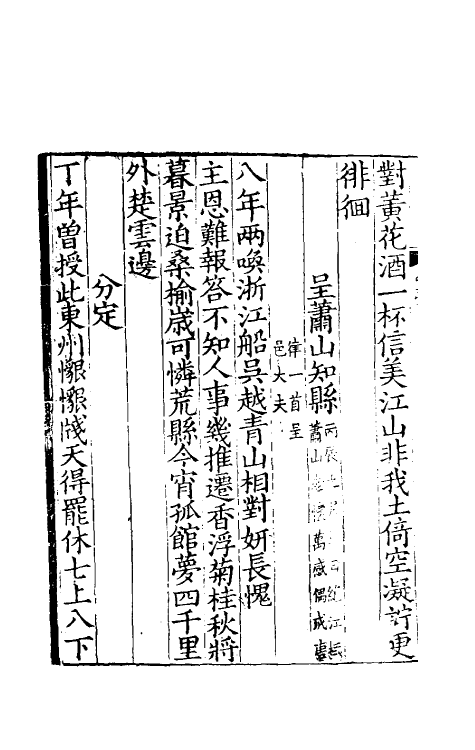 對黃花酒一杯信美江山非我土倚空凝竚更
徘徊
呈蕭山知縣
蕭山 萬感偶成
律一首呈
邑大夫
八年兩喚浙江船吳越青山相對妍長愧
主恩難報答不知人事幾推遷香浮菊桂秋將
暮景迫桑榆歳可憐荒縣今宵孤館夢四千里
外楚雲邊
分定
丁年曽授此東州懶天得罷休七上八下